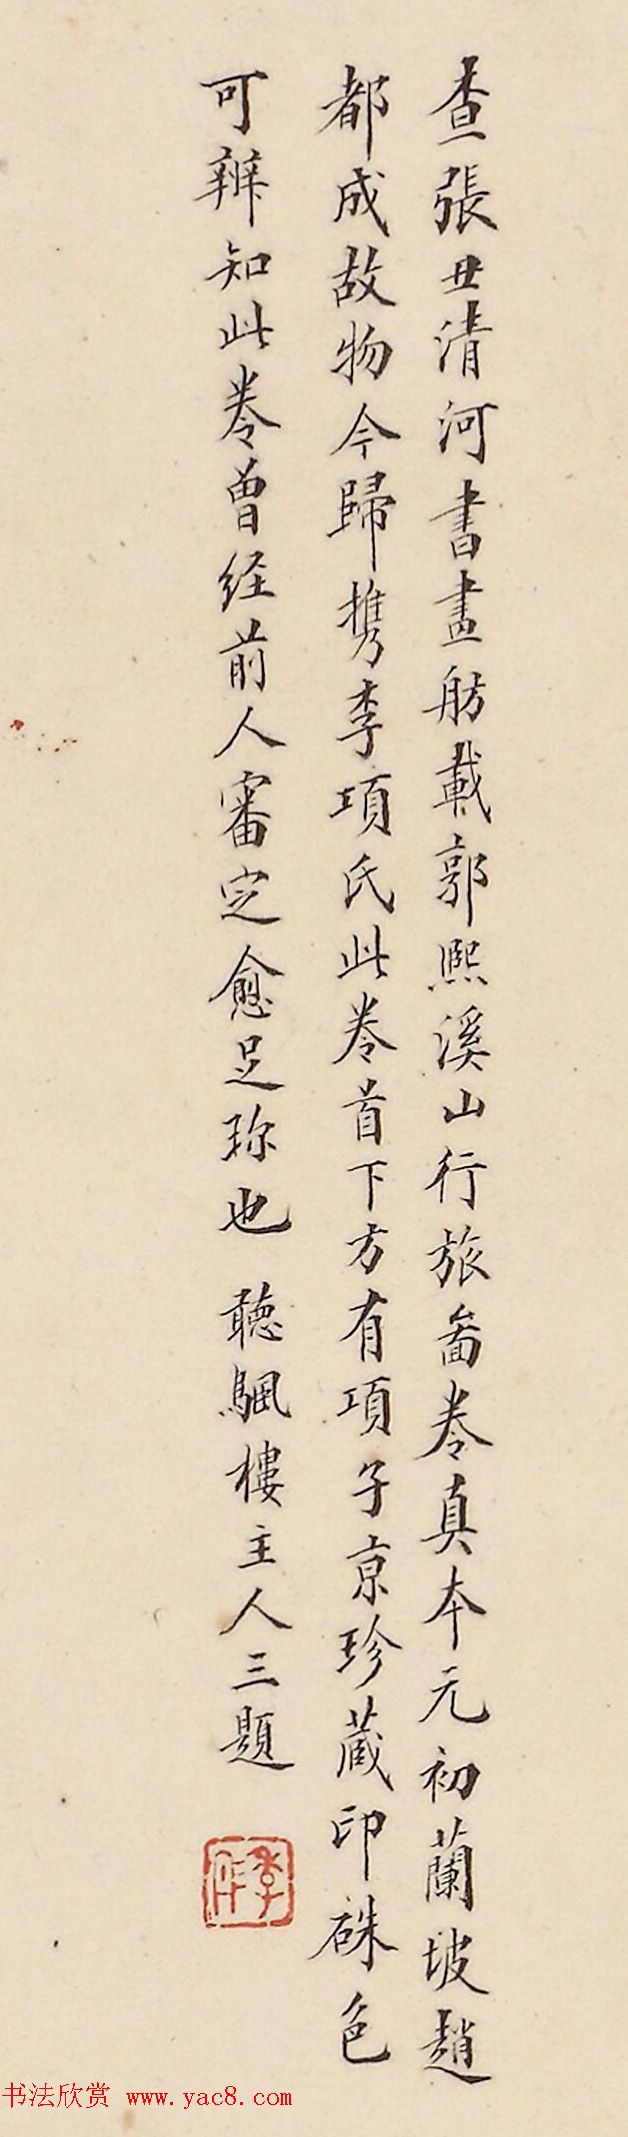 查張丑清河書畫舫載郭熙溪山行旅啚卷真本元初蘭坡趙
都成故物今歸携李項氏此卷首下方有項子京珍蔵印硃色
可辨知此卷曾経前人審定愈足珎也 聴颿樓主人三題
季仝
书法欣赏 www.yac8.com